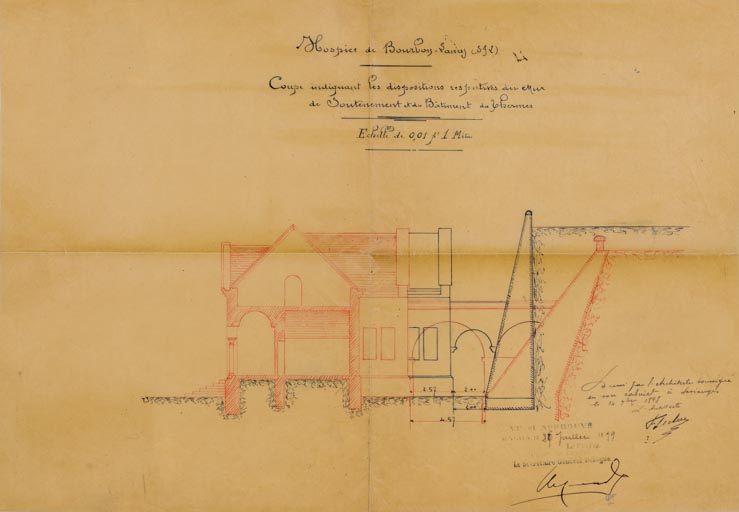 Hospice de Bourbon-Lancy (S&L)
Coupe indiquant les dispositions respectives du Mur
de Soutènement et du Bâtiment des Thermes
Echelle de 0,01 pr 1 Mètre
2.57
2.00
4.57
Dressé par l'architecte soussigné
en son cabinet à
le 1898
L'architecte
VU ET APPROUVÉ
31 Juillet 1899
Le Secrétaire Général délégué